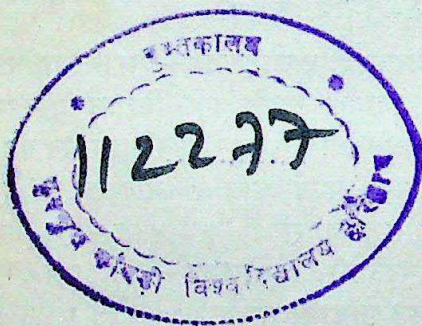 पुस्तकालय
112277
गुरुकुल काँगड़ी विश्वविद्यालय हरिद्वार